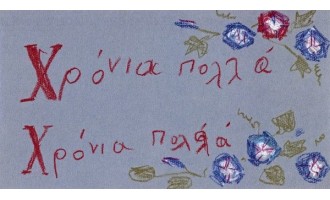 Χρόνια πολλά
Χρόνια πολλά